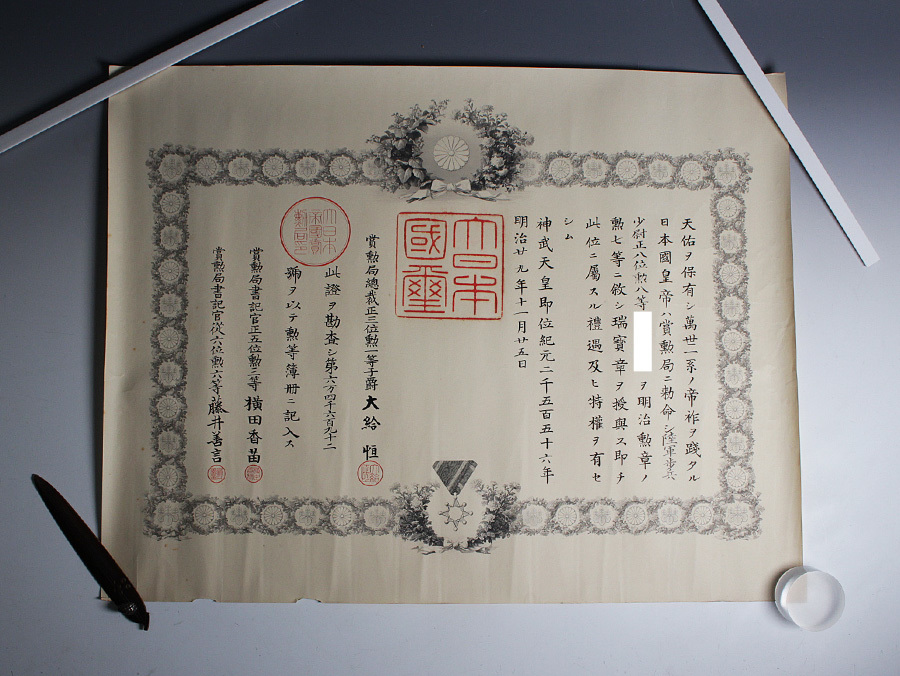 天佑ヲ保有シ萬世一系ノ帝祚ヲ踐タル
日本國皇帝ハ賞勲局ニ勅命シ陸軍歩兵
少尉正八位勲八等
ヲ明治勲章ノ
勲七等ニ敘シ瑞寶章ヲ授與ス即チ
此位ニ屬スル禮遇及ヒ特權ヲ有セ
シム
神武天皇即位紀元二千五百五十六年
明治廿九年十一月廿五日
大日本
國璽
賞勲局總裁正三位勲一等子爵大給恒
此證ヲ勘査シ第六万四千六百九十二
號ヲ以テ勲等簿册ニ記入ス
賞勲局書記官正五位勲三等横田香苗
賞勲局書記官從六位勲六等藤井善言